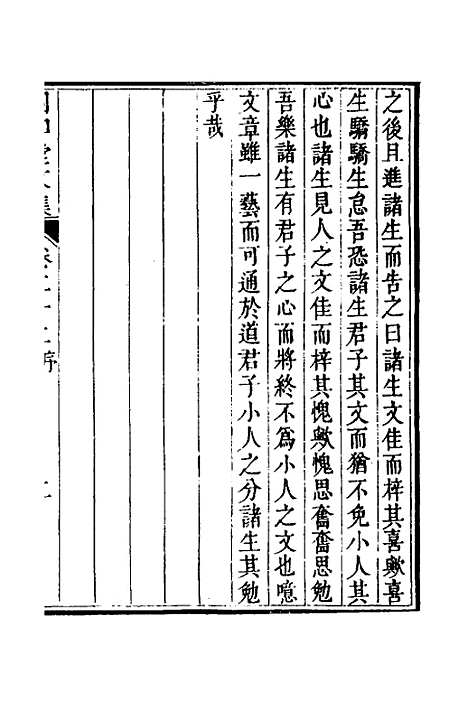 之後且進諸生而告之曰諸生文佳而梓其喜歟喜
生驕驕生怠吾恐諸生君子其文而猶不免小人其
心也諸生見人之文佳而梓其愧歟愧思奮奮思勉
吾樂諸生有君子之心而將終不為小人之文也噫
文章雖一藝而可通於道君子小人之分諸生其勉
乎哉